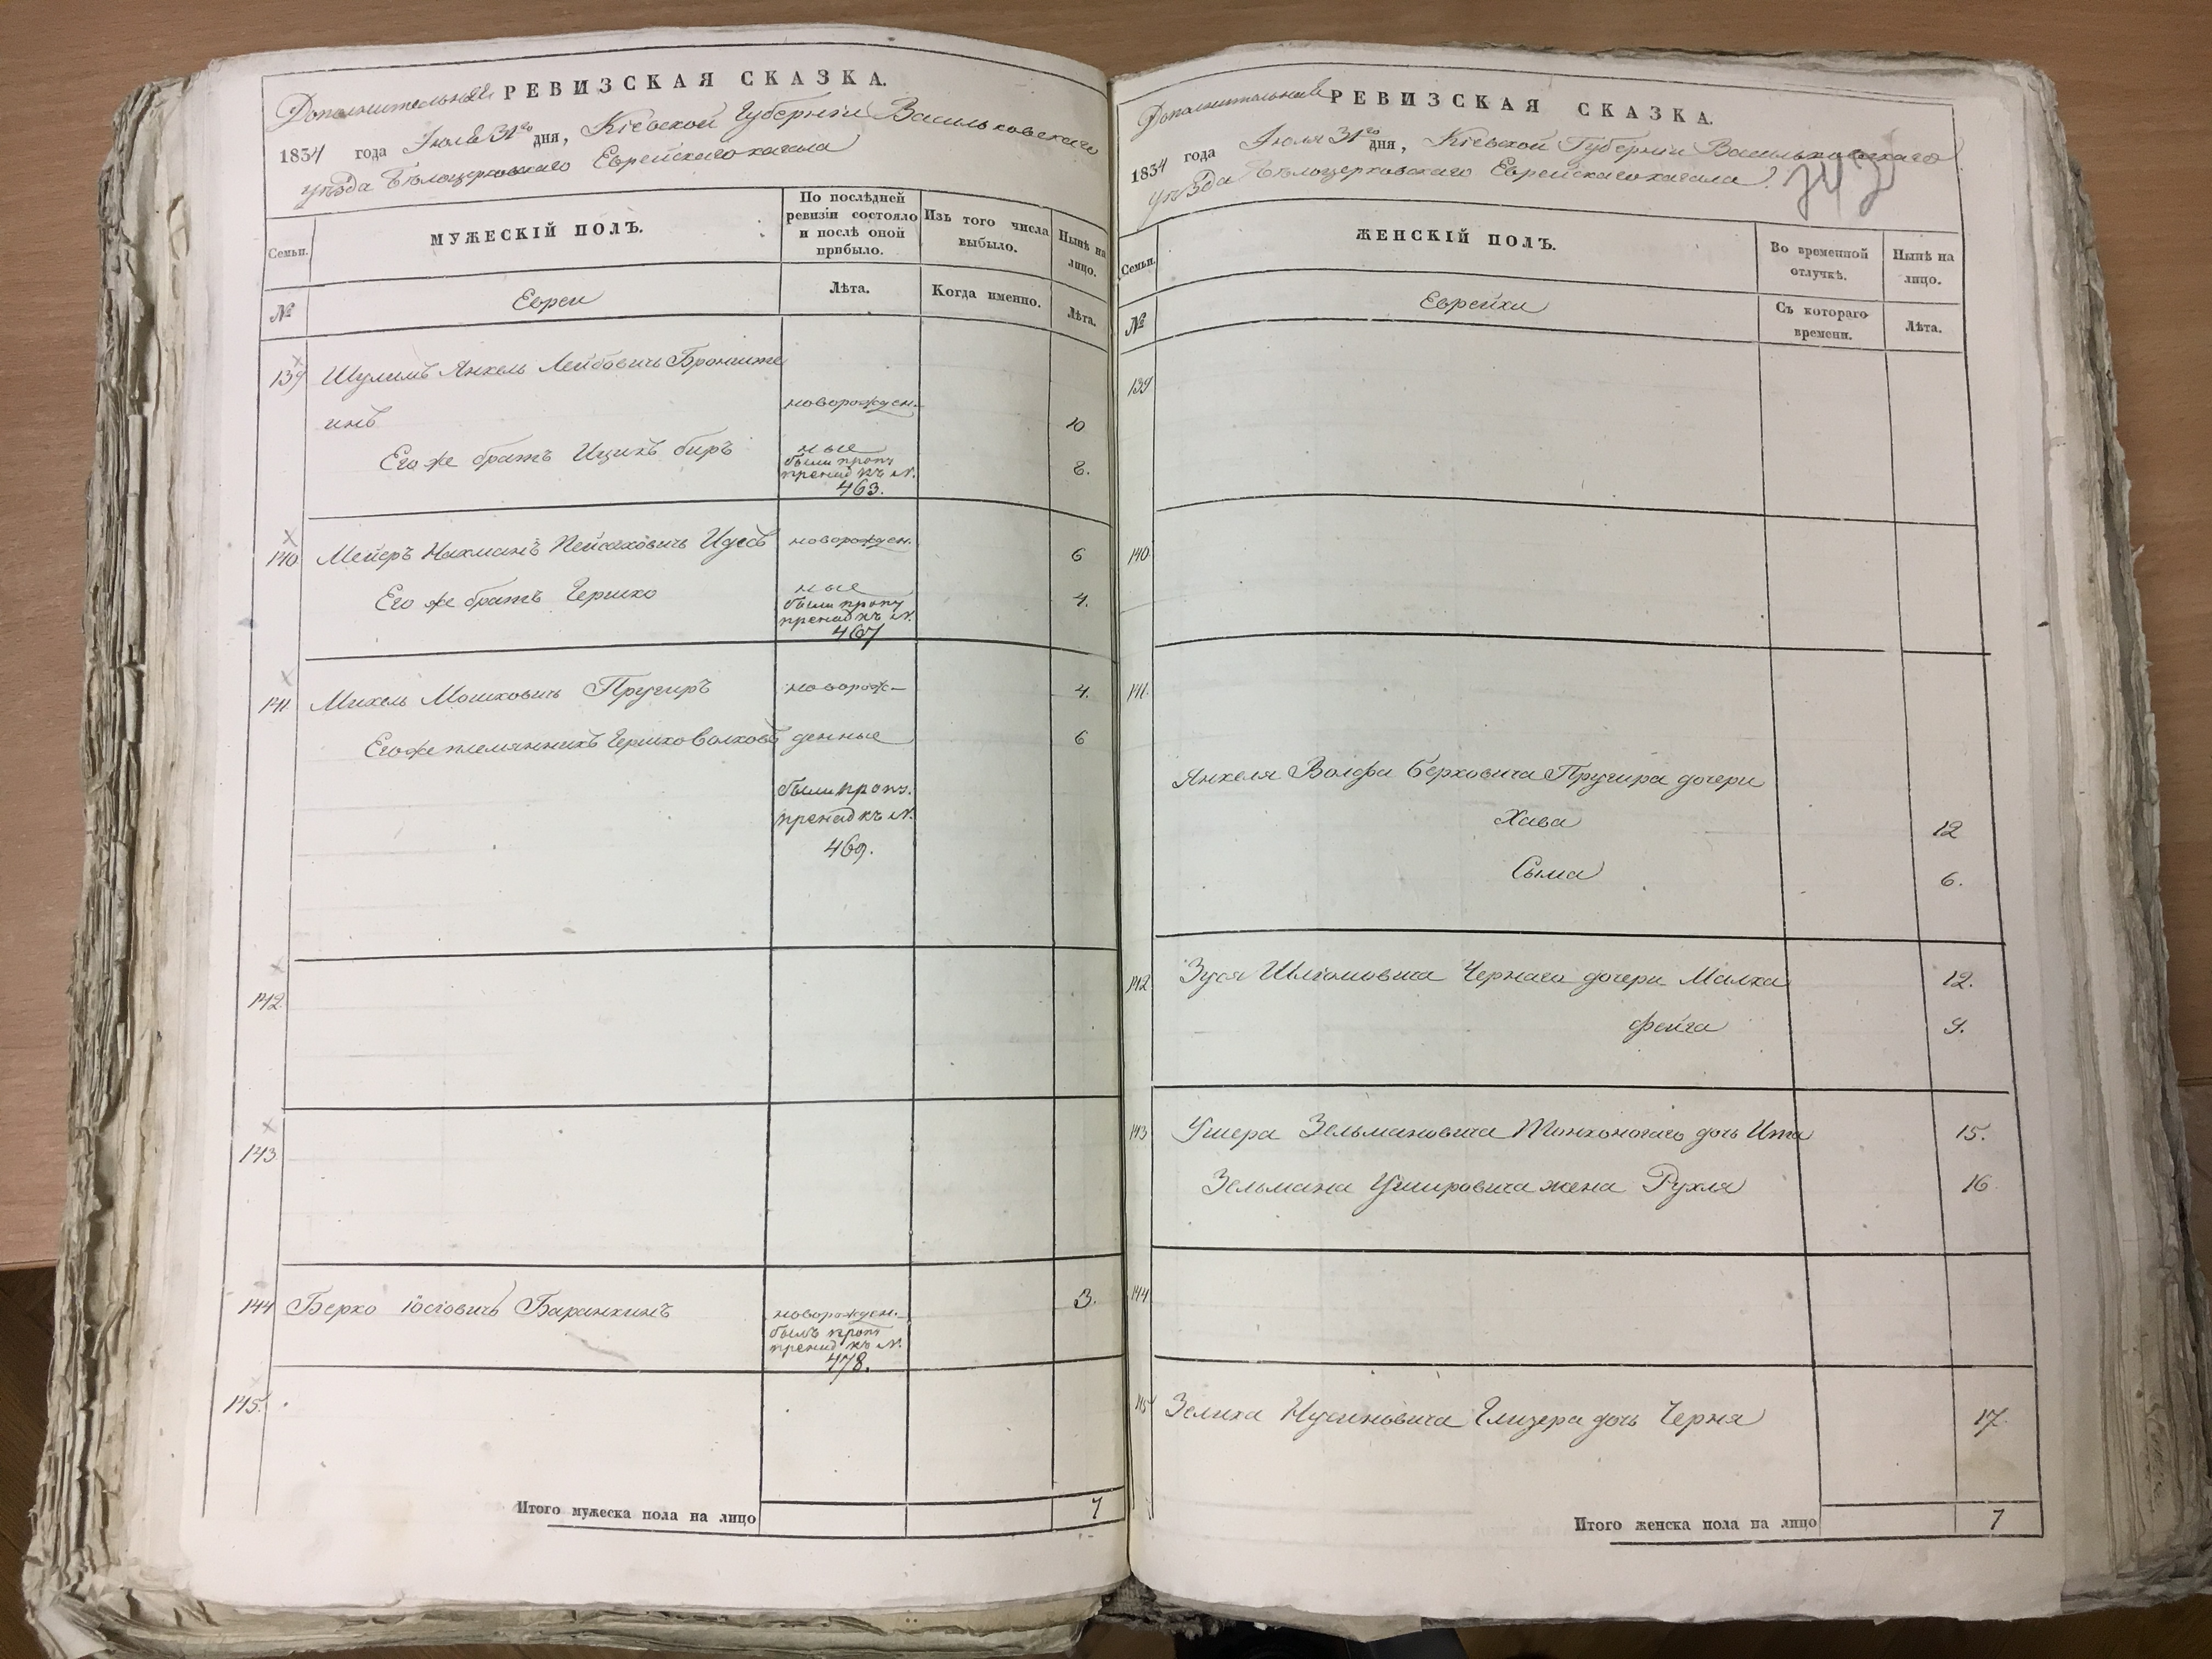 Дополнительная РЕВИЗСКАЯ СКАЗКА.
1834 года Іюля 31го дня, Кіевской Губерніи Васильковскаго
уѣзда Бѣлоцерковскаго Еврейскаго кагала
Семьи.
МУЖЕСКІЙ ПОЛЪ.
По послѣдней ревизіи состояло и послѣ оной прибыло.
Изъ того числа выбыло.
Нынѣ на лицо.
№
Евреи
Лѣта.
Когда именно.
Лѣта.
139 Шулимъ Янкель Лейбовичь Бронште
инъ новорожден- 10
Его же братъ Ицикъ беръ ные 8.
были проп.
пренад къ №.
463.
140 Мейеръ Нахманъ Пейсаховичь Идесъ новорожден. 6
Его же братъ Гершко ные 4.
были проп.
пренад къ №.
467
141 Михель Мошковичь Пругиръ новорож- 4.
Его же племянникъ Гершко Волковъ денные 6
были проп.
пренад къ №.
469.
142.
143.
144 Берко Іосіовичь Баранкинъ новорожден. 3.
былъ проп.
пренад къ №.
478.
145.
Итого мужеска пола на лицо 7
Дополнительная РЕВИЗСКАЯ СКАЗКА.
1834 года Іюля 31го дня, Кіевской Губерніи Васильковскаго
уѣзда Бѣлоцерковскаго Еврейскаго кагала
Семьи.
ЖЕНСКІЙ ПОЛЪ.
Во временной отлучкѣ.
Нынѣ на лицо.
№
Еврейки
Съ котораго времени.
Лѣта.
139
140
141.
Янкеля Волфа Берковича Пругира дочери
Хава 12
Сыма 6.
142 Зуся Шліомовича Чернаго дочери Малка 12.
Фейга 9.
143 Ушера Зельмановича Тонконогаго дочь Ита 15.
Зельмана Ушировича жена Рухля 16
144
145 Зелика Нусиновича Глизера дочь Черня 17.
Итого женска пола на лицо 7